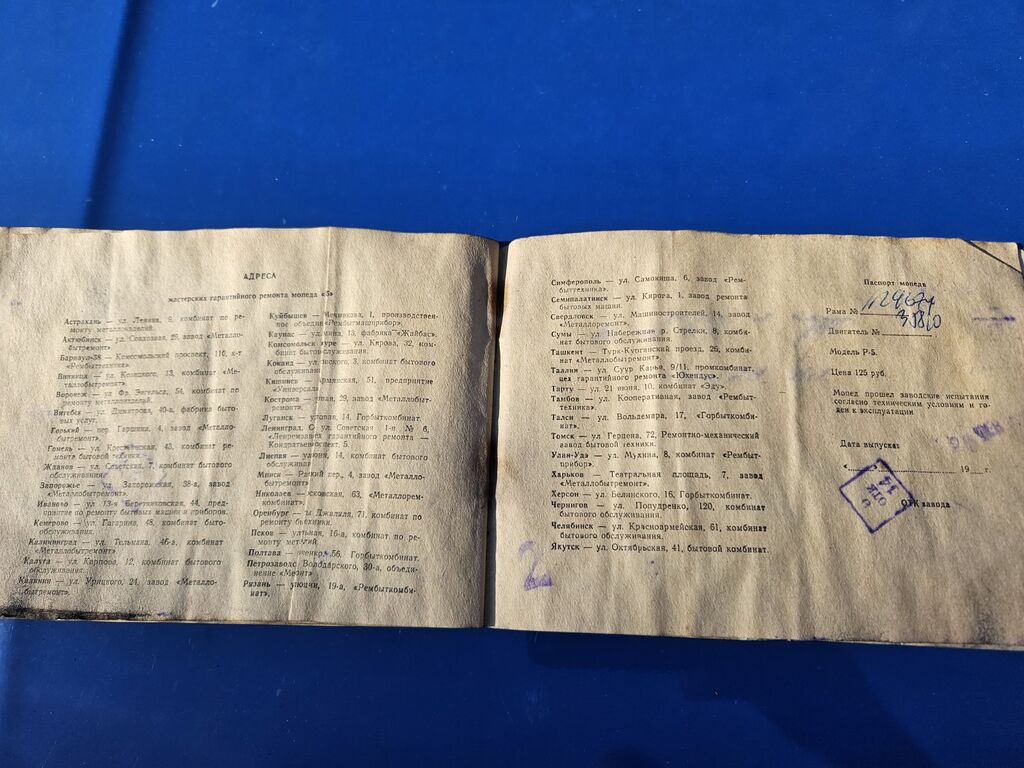 АДРЕСА
мастерских гарантийного ремонта мопеда
Астрахань — ул. Ленина, 9, комбинат по ре-
монту металлоизделий.
Актюбинск — ул.
бытремонт».
Барнаул-38 — Комсомольский проспект, 110, к-т
«Рембыттехника».
Винница — ул. 13, комбинат «Ме-
таллобытремонт».
Воронеж — ул Фр. Энгельса, 54, комбинат по
ремонту металлоизделий.
Витебск — ул. Димитрова, фабрика быто-
вых услуг.
Горький — пер. Гаршина, 4, завод «Метало-
бытремонт».
Гомель — ул. Крестьянская, 43, комбинат ре-
монта бытовой техники.
Жданов — ул. Советская, 7, комбинат бытового
обслуживания.
Запорожье — ул. Запорожская, 38-а, завод
«Металлобытремонт».
Иваново — ул 13-я Березниковская, 44, пред-
приятие по ремонту бытовых машин и приборов.
Кемерово — ул. Гагарина, 48, комбинат быто-
обслуживания.
Калининград — ул. Тельмана, 46-а, комбинат
«Металлобытремонт»
Калуга — ул. Карпова, 12, комбинат бытового
обслуживания.
Калинин — ул. Урицкого, 24, завод «Металло-
бытремонт».
Куйбышев — 1, производствен-
ное
Каунас — 13, фабрика «Жайбас».
Комсомольск ул. Кирова, 32, ком-
бинат бытобслуживания.
Коканд — 3, комбинат бытового
обслуживани
Кишинев — 51, предприятие
«Универсал»
Кострома — 29, завод «Металлобыт-
ремонт».
Луганск — 14, Горбыткомбинат.
Ленинград, ул Советская № 6,
гарантийного ремонта —
5.
Лиепая — 14, комбинат бытового
обслуживания
Минск — пер., 4, завод «Металло-
бытремонт»
Николаев — 63, «Металлорем-
комбинат».
Оренбург — Джалиля, 71, комбинат по
ремонту
Псков — 16-а, комбинат по ре-
монту
Полтава — 56, Горбыткомбинат.
Петрозаводс 30-а, объеди-
нение
Рязань — 19-а, «Рембыткомби-
нат».
Симферополь — ул. Самокиша, 6, завод «Рем-
быттехника».
Семипалатинск — ул. Кирова, 1, завод ремонта
бытовых машин.
Свердловск — ул. Машиностроителей, 14, завод
«Металлоремонт».
Сумы — ул. Набережная р. Стрелки, 8, комби-
нат бытового обслуживания.
Ташкент — Турк-Курганский проезд, 26, комби-
нат «Металлобытремонт».
Таллин — ул. Суур Карья, 9/11, промкомбинат,
цех гарантийного ремонта «Юхендус».
Тарту — ул. 21 июня, 10, комбинат «Эду».
Тамбов — ул. Кооперативная, завод «Рембыт-
техника».
Талси — ул. Вольдемара, 17, «Горбыткомби-
нат».
Томск — ул Герцена, 72, Ремонтно-механический
завод бытовой техники.
Улан-Удэ — ул. Мухина, 8, комбинат «Рембыт-
прибор».
Харьков — Театральная площадь, 7, завод
«Металлобытремонт».
Херсон — ул. Белинского, 16, Горбыткомбинат.
Чернигов — ул. Попудренко, 120, комбинат
бытового обслуживания.
Челябинск — ул. Красноармейская, 61, комбинат
бытового обслуживания.
Якутск — ул. Октябрьская, 41, бытовой комбинат.
2
Паспорт мопеда
Рама №
Двигатель №
Модель Р-5.
Цена 125 руб.
Мопед прошел заводские испытания
согласно техническим условиям и го-
ден к эксплуатации.
Дата выпуска:
« 19 г.
ОТК завода
ОТК
14